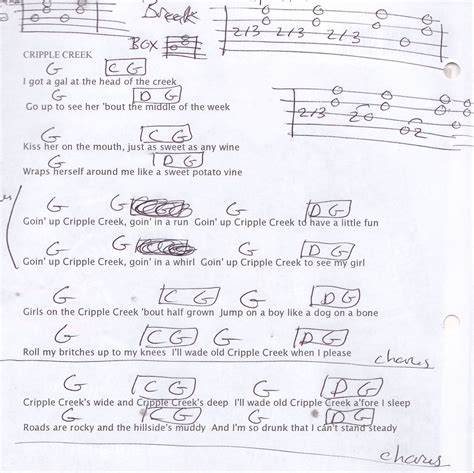 Break
BOX
213 213 213
CRIPPLE CREEK
G C G
I got a gal at the head of the creek
G D G
Go up to see her 'bout the middle of the week
213 20
02
G C G
Kiss her on the mouth, just as sweet as any wine
G D G
Wraps herself around me like a sweet potato vine
G G D G
Goin' up Cripple Creek, goin' in a run Goin' up Cripple Creek to have a little fun
G G D G
Goin' up Cripple Creek, goin' in a whirl Goin' up Cripple Creek to see my girl
G C G G D G
Girls on the Cripple Creek 'bout half grown Jump on a boy like a dog on a bone
G C G G D G
Roll my britches up to my knees I'll wade old Cripple Creek when I please
chorus
G C G G D G
Cripple Creek's wide and Cripple Creek's deep I'll wade old Cripple Creek a'fore I sleep
G C G G D G
Roads are rocky and the hillside's muddy And I'm so drunk that I can't stand steady
chorus